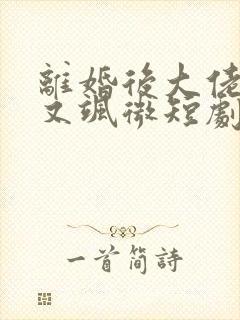 離婚後大佬
又颯微短劇
一首簡詩